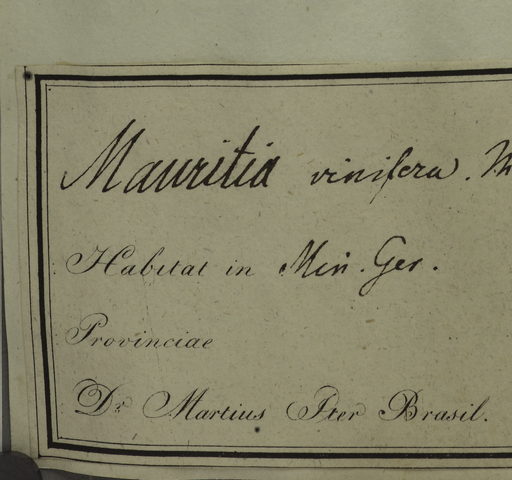 Mauritia vinifera. M
Habitat in Min. Ger.
Provinciae
Dr. Martius Iter Brasil.